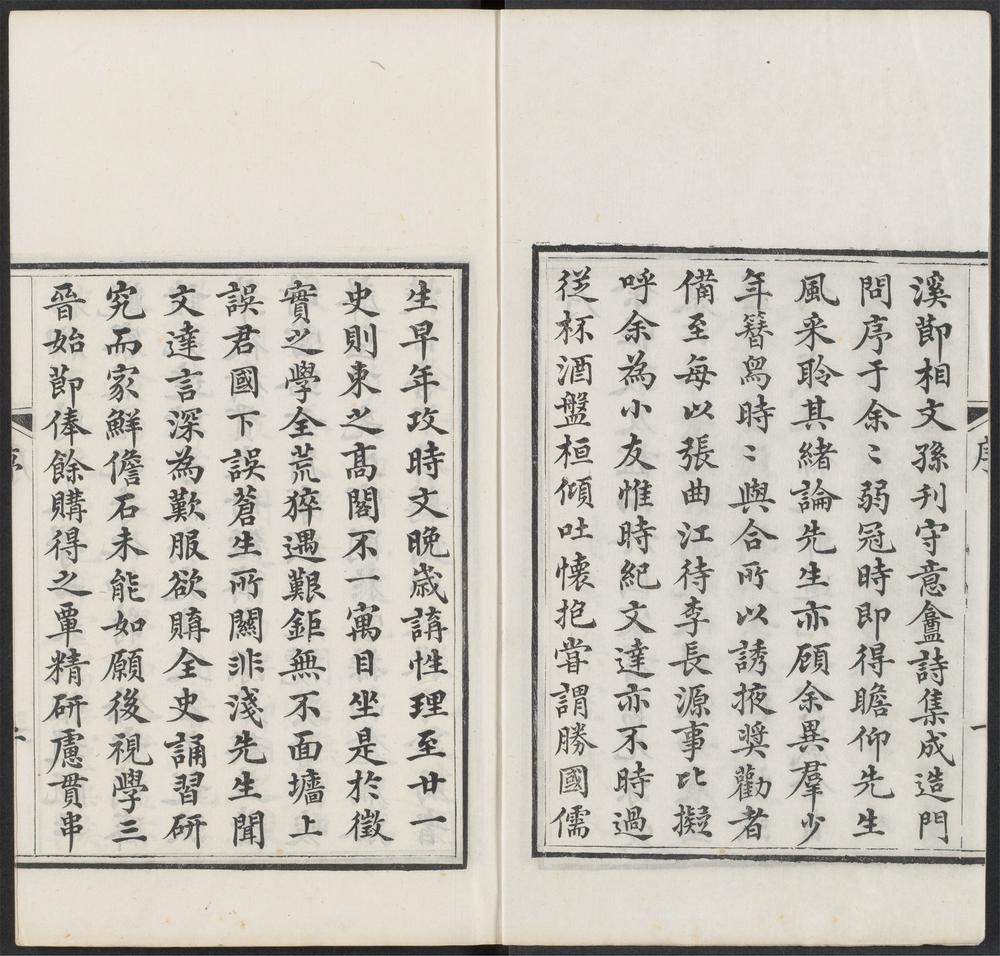 溪節相文孫刊守意龕詩集成造門
問序于余〻弱冠時即得瞻仰先生
風采聆其緒論先生亦顧余異羣少
年簪舄時〻與合所以誘掖奨勸者
備至每以張曲江待李長源事比擬
呼余為小友惟時紀文達亦不時過
從杯酒盤桓傾吐懷抱嘗謂勝國儒
序
一
生早年攻時文晩歲講性理至廿一
史則束之髙閣不一寓目坐是於徵
實之學全荒猝遇艱鉅無不面墻上
誤君國下誤蒼生所關非淺先生聞
文達言深為歎服欲購全史誦習研
究而家鮮儋石未能如願後視學三
晉始節俸餘購得之覃精研慮貫串